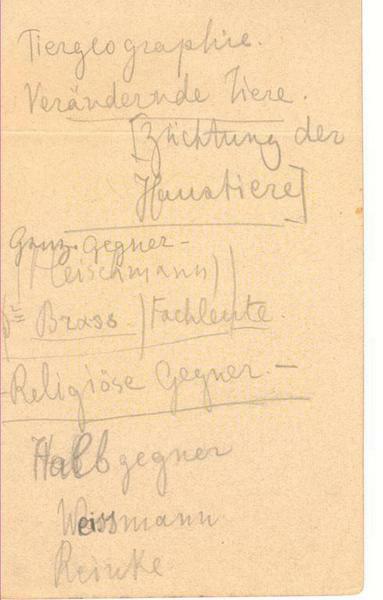 Tiergeographie.
Verändernde Tiere.
[Züchtung der
Haustiere]
Ganz-gegner-
(Fleischmann)
Dr Brass) Fachleute.
Religiöse Gegner. —
Halbgegner
Weissmann
Reinke